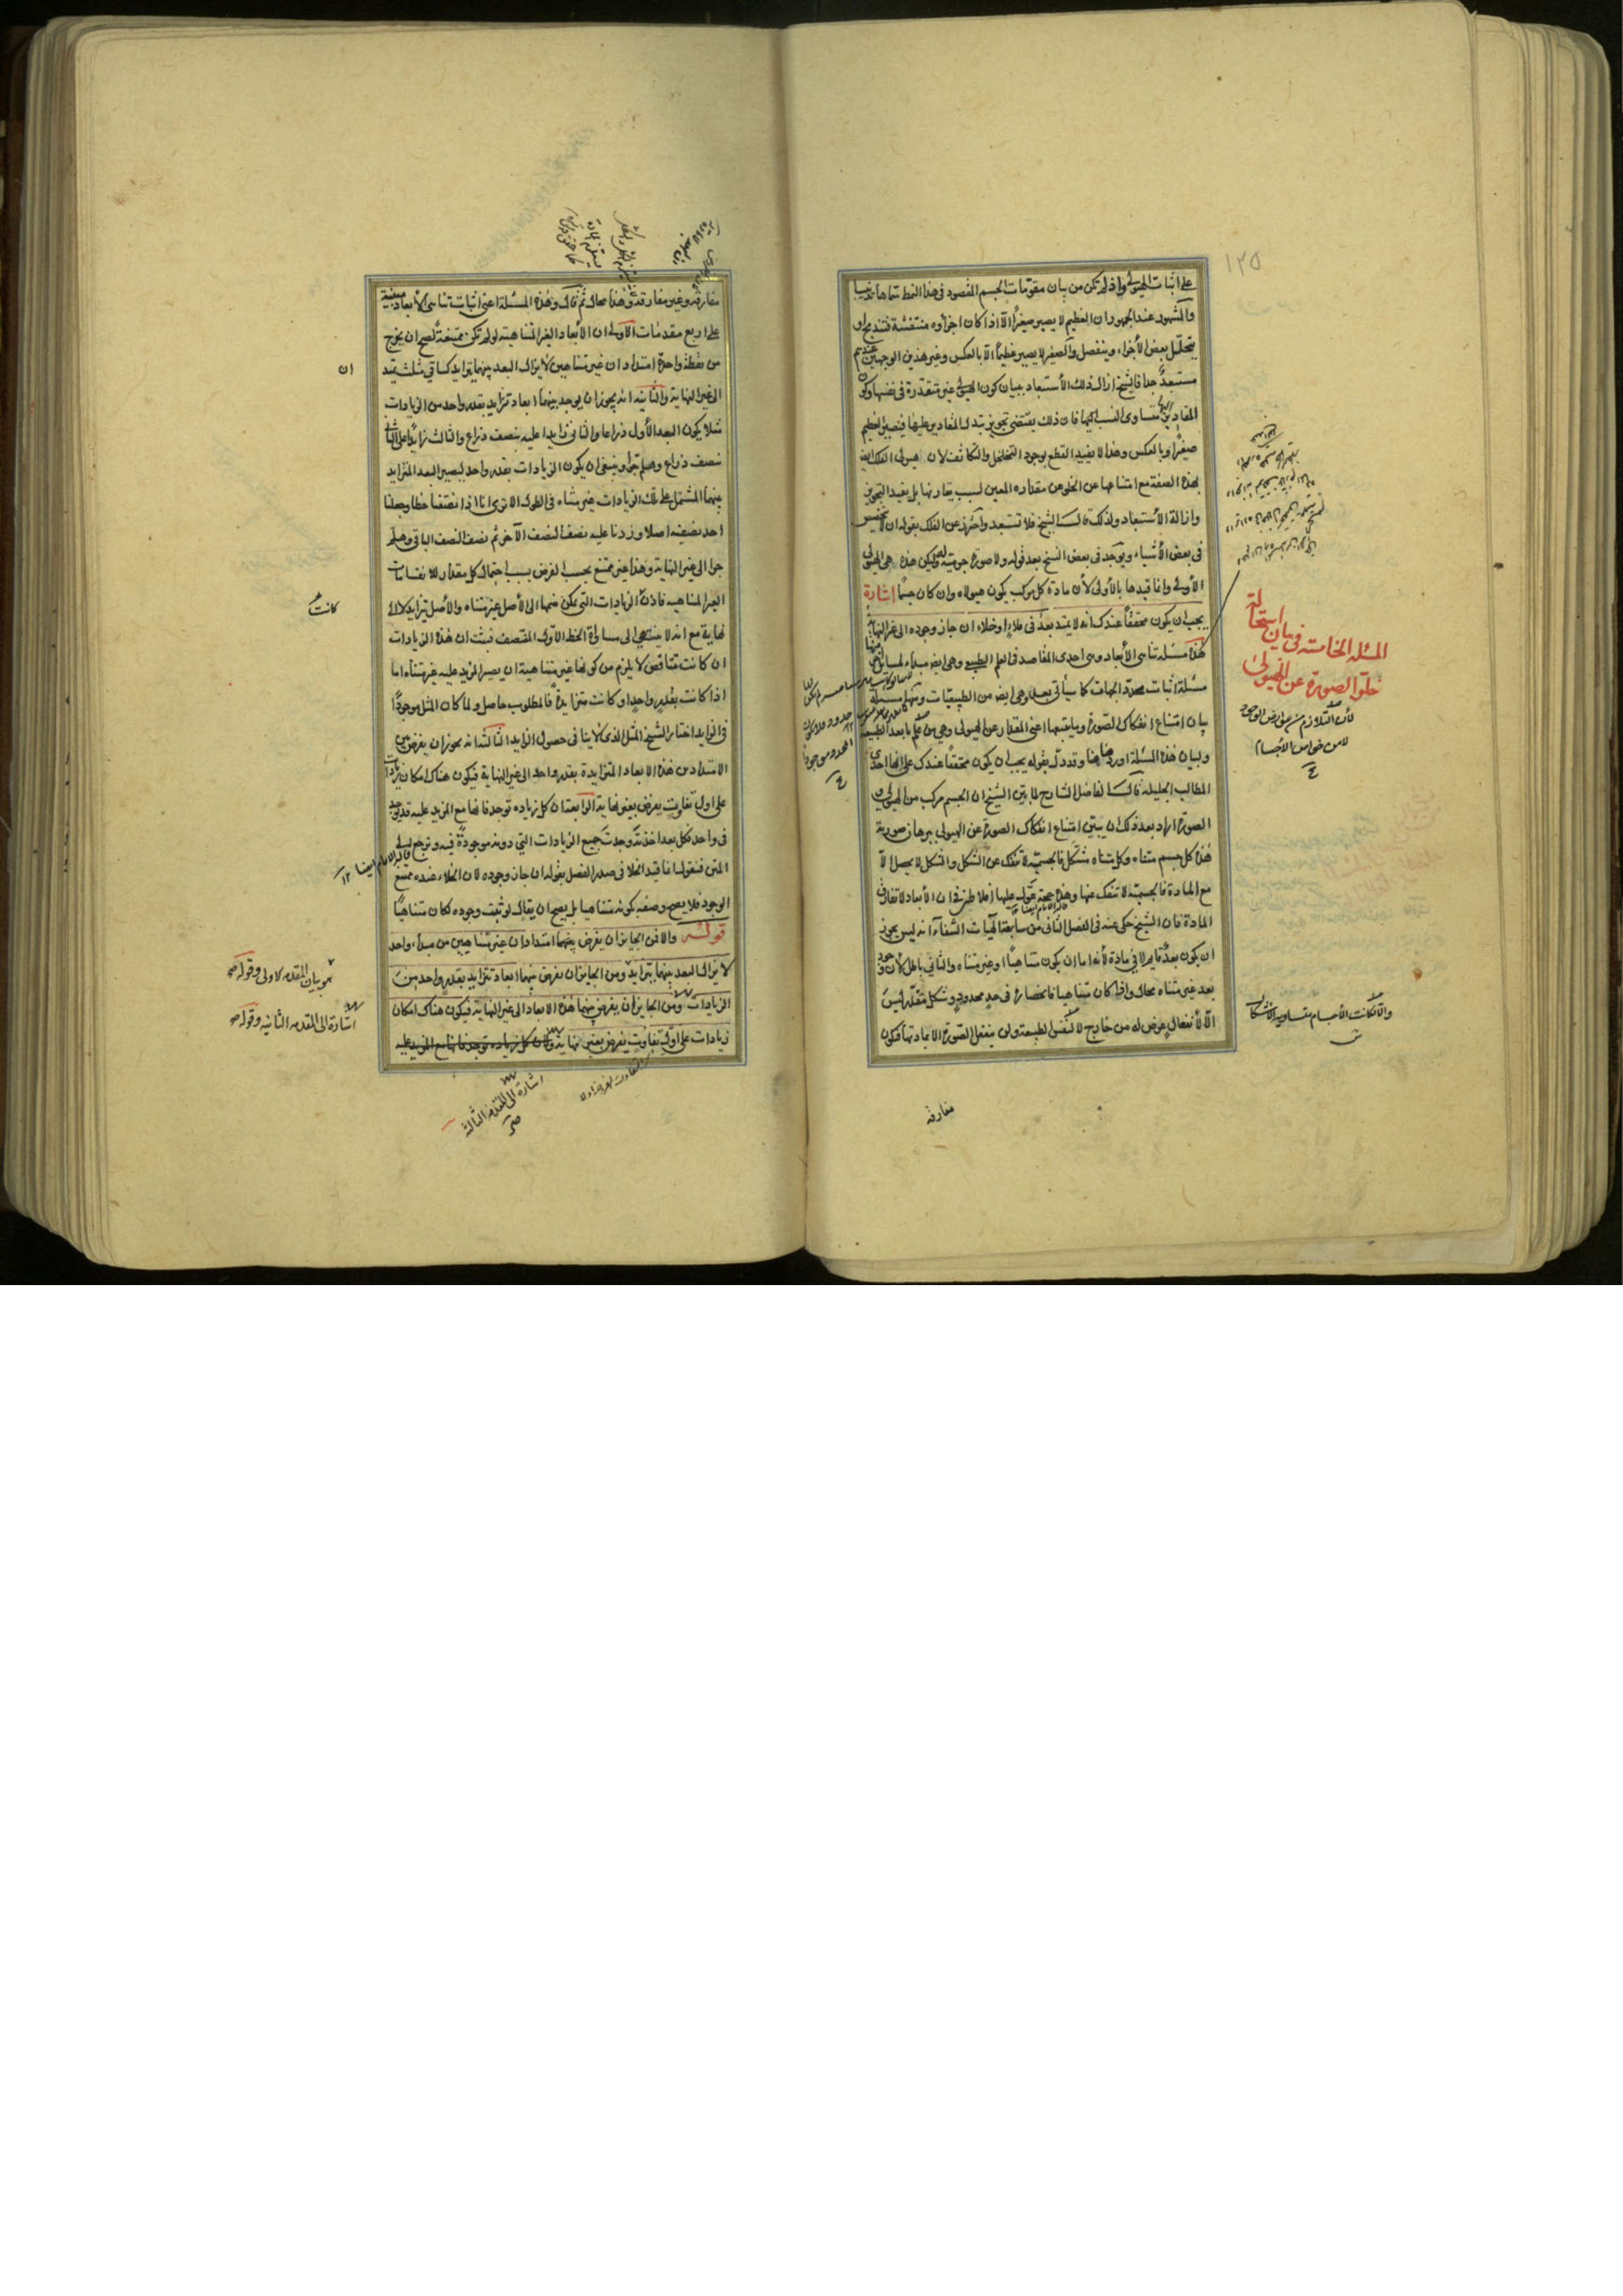 ١٢٥
على اثبات الهيولى واذ لم تكن من بيان مقومات الجسم المقصود فى هذا النمط سماها تذنيبا
والمشهور عند الجمهور ان العظيم لا يصير صغيرا الا اذا كان اجزاؤه منتفشة فتندمج او
يتحلل بعض الاجزاء وينفصل والصغير لا يصير عظيما الا بالعكس وغير هذين الوجهين عندهم
مستبعد جدا فالشيخ ازال ذلك الاستبعاد ببيان كون الهيولى غير متقدرة فى نفسها وكون
المقادير متساوى النسب اليها فان ذلك يقتضى تجويز تبدل المقادير عليها فيصير العظيم
صغيرا وبالعكس وهذا لا يفيد القطع بوجود التخلخل والتكاثف لان هيولى الفلك ايضا
بهذه الصفة مع امتناعها عن الخلو عن مقداره المعين لسبب يقارنها بل يفيد التجويز
وازالة الاستبعاد ولذلك قال الشيخ فلا تستبعد واحترز عن الفلك بقوله ان لا يتخصص
فى بعض الاشياء ويوجد فى بعض النسخ بعد قوله ولا صورة جرمية له ولكن هذه هى الهيولى
الاولى وانما قيدها بالاولى لان مادة كل مركب يكون هيولاه وان كان جسما اشارة
يجب ان يكون محققا عندك انه لا يمتد بعد فى ملاء او خلاء ان جاز وجوده الى غير النهاية
هذه مسئلة تناهى الابعاد وهى احدى المقاصد فى العلم الطبيعى وهى ايضا مبدأ لمسائل منها
مسئلة اثبات محدد الجهات كما سيأتى بعد وهى ايضا من الطبيعيات ومنها مسئلة
بيان امتناع انفكاك الصورة وما يتبعها اعنى المقدار عن الهيولى وهى من علم ما بعد الطبيعة
ولبيان هذه المسئلة اوردها هنا وقد دل بقوله يجب ان يكون محققا عندك على انها احدى
المطالب الجليلة قال الفاضل الشارح لما بين الشيخ ان الجسم مركب من الهيولى و
الصورة اراد بعد ذلك ان يبين امتناع انفكاك الصورة عن الهيولى ببرهان صورته
هذه كل جسم متناه وكل متناه مشكل فالجسمية لا تنفك عن الشكل والشكل لا يحصل الا
مع المادة فالجسمية لا تنفك عنها وهذه حجة عول عليها افلاطن فى ان الابعاد لا تفارق
المادة فان الشيخ حكى عنه فى الفصل الثانى من سابعة الهيات الشفاء انه ليس يجوز
ان يكون بعد قايم لا فى مادة لانه اما ان يكون متناهيا او غير متناه والثانى باطل لان وجود
بعد غير متناه محال واذا كان متناهيا فانحصاره فى حد محدود وشكل مقدر ليس
الا لانفعال عرض له من خارج لا لنفس الطبيعة ولن ينفعل الصورة الا لمادتها فتكون
مفارقه
المسئلة الخامسة فى بيان استحالة
خلو الصورة عن الهيولى
لان التلازم من عوارض الوجود
لا من خواص الاجسام
والا لكانت الاجسام متساوية الاشكال
مفارقه وغير مفارقة وهذا محال ثم قال وهذه المسئلة اعنى اثبات تناهى الابعاد مبنية
على اربع مقدمات الاولى ان الابعاد الغير المتناهية لو لم تكن ممتنعة لصح ان يخرج
من نقطة واحدة امتدادان غير متناهيين لا يزال البعد بينهما يتزايد كساقى مثلث يمتد
الى غير النهاية والثانية انه يجوز ان يوجد بينهما ابعاد تتزايد بقدر واحد من الزيادات
مثلا يكون البعد الاول ذراعا والثانى زايدا عليه بنصف ذراع والثالث زايدا على الثانى
بنصف ذراع وهلم جرا وينبغى ان يكون الزيادات بقدر واحد ليصير البعد المتزايد
بينهما المشتمل على تلك الزيادات غير متناه فى الطول الا ترى انا اذا نصفنا خطا وجعلنا
احد نصفيه اصلا وزدنا عليه نصف النصف الآخر ثم نصف النصف الباقى وهلم
جرا الى غير النهاية وهذا غير ممتنع بحسب الفرض بسبب احتمال كل مقدار للانقسامات
الغير المتناهيه فاذن الزيادات التى يمكن ضمها الى الاصل غير متناه والاصل يتزايد لا الى
نهاية مع انه لا ينتهى الى مساواة الخط الاول المنتصف فثبت ان هذه الزيادات
ان كانت متناقصة لا يلزم من كونها غير متناهية ان يصير المزيد عليه غير متناه اما
اذا كانت بقدر واحد او كانت متزايدة فالمطلوب حاصل ولما كان المثل موجودا
فى الزايد اختار الشيخ المثل الذى لا ينافى حصول الزايد الثالثة انه يجوز ان يفرض بين
الامتدادين هذه الابعاد المتزايدة بقدر واحد الى غير النهاية فيكون هناك امكان زيادات
على اول تفاوت يفرض بغير نهاية الرابعة ان كل زيادة توجد فانها مع المزيد عليه قد يوجد
فى واحد فكل بعد اخذته وجدت جميع الزيادات التى دونه موجودة فيه ونرجع الى
المتن فنقول انما قيد الخلا فى صدر الفصل بقوله ان جاز وجوده لان الخلاء عنده ممتنع
الوجود فلا يصح وصفه بكونه متناهيا بل يصح ان يقال لو ثبت وجوده لكان متناهيا
قوله والا فمن الجايز ان يفرض بينهما امتدادان غير متناهيين من مبدأ واحد
لا يزال البعد بينهما يتزايد ومن الجايز ان يفرض بينهما ابعاد تتزايد بقدر واحد من
الزيادات ومن الجايز ان يفرض بينهما هذه الابعاد الى غير النهاية فيكون هناك امكان
زيادات على اول تفاوت يفرض بغير نهاية ولان كل زيادة توجد فانها مع المزيد عليه
ان
كانت
هو بيان المقدمة الاولى وقوله
اشارة الى المقدمة الثانية وقوله
اشارة الى المقدمة الثالثة